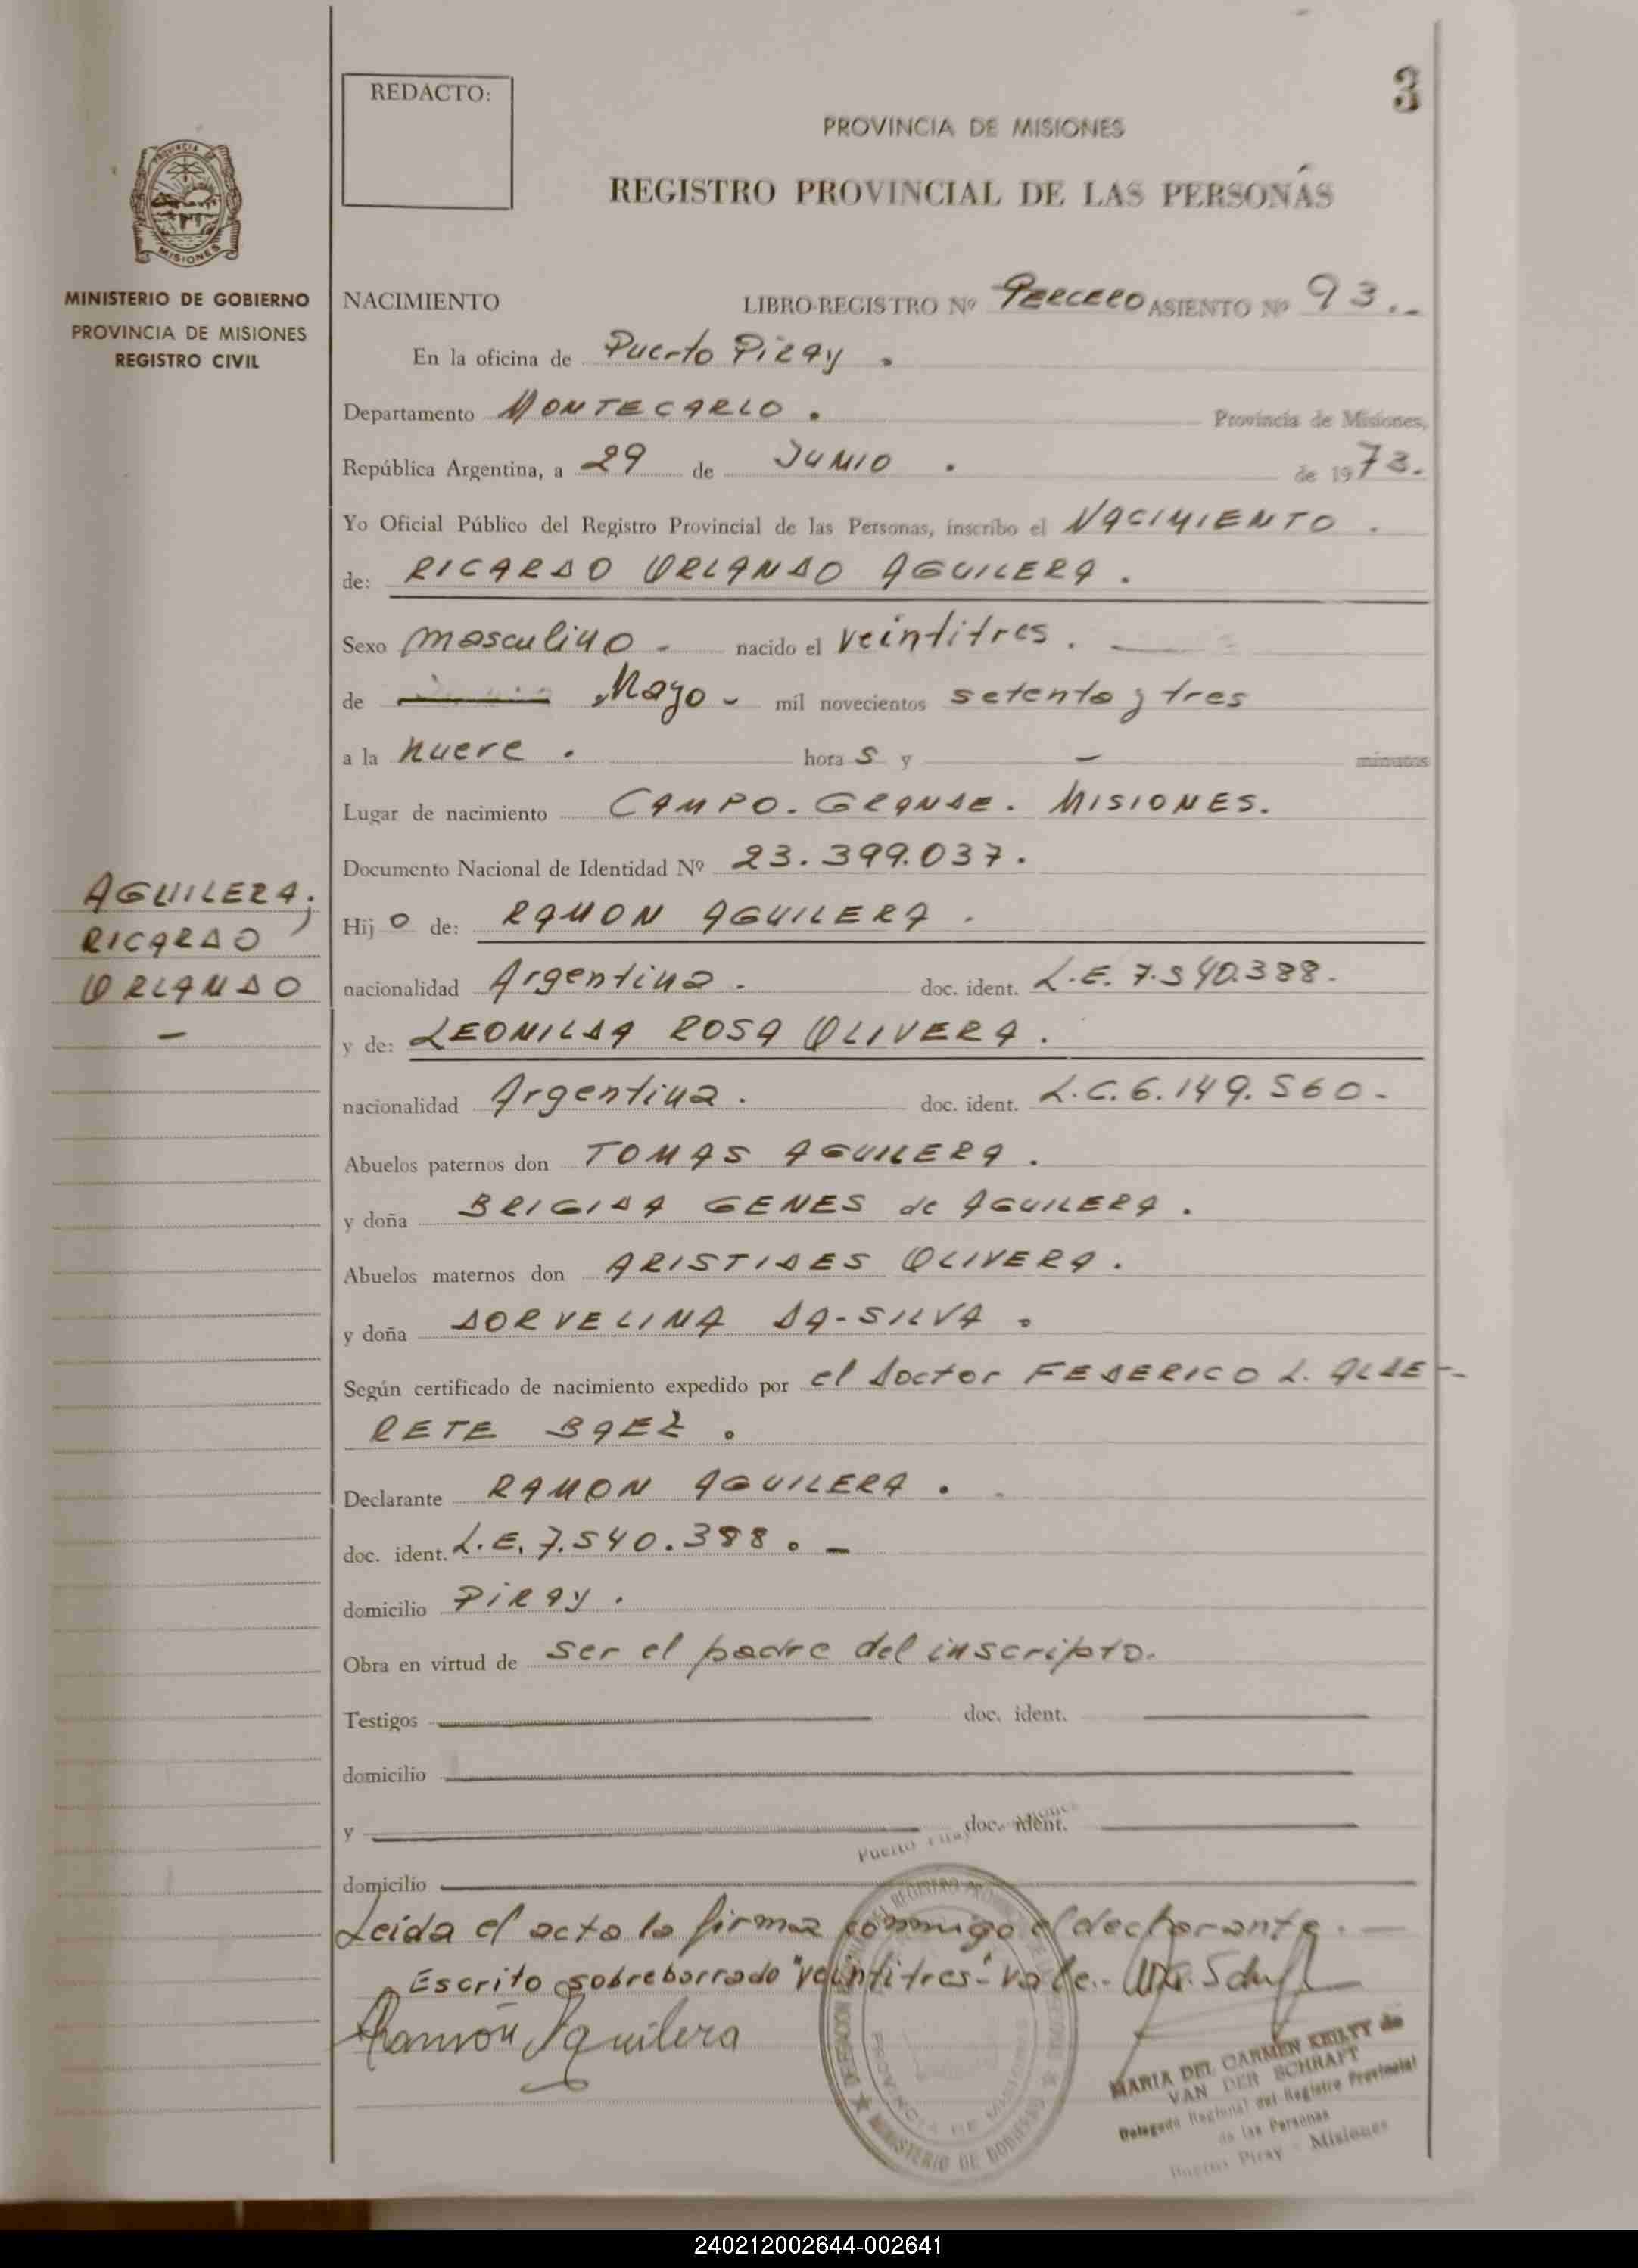 3
REDACTO:
PROVINCIA DE MISIONES
REGISTRO PROVINCIAL DE LAS PERSONAS
PROVINCIA DE
MISIONES
MINISTERIO DE GOBIERNO
PROVINCIA DE MISIONES
REGISTRO CIVIL
NACIMIENTO LIBRO-REGISTRO Nº TERCERO ASIENTO Nº 93.-
En la oficina de Puerto Piray.
Departamento MONTECARLO. Provincia de Misiones,
República Argentina, a 29 de JUNIO. de 1973.
Yo Oficial Público del Registro Provincial de las Personas, inscribo el NACIMIENTO.
de: RICARDO ORLANDO AGUILERA.
Sexo masculino.- nacido el veintitres.
de Mayo - mil novecientos setenta y tres
a la nueve. hora s y - minutos
Lugar de nacimiento CAMPO-GRANDE. MISIONES.
Documento Nacional de Identidad Nº 23.399.037.
AGUILERA;
RICARDO
ORLANDO
-
Hij o de: RAMON AGUILERA.
nacionalidad Argentina. doc. ident. L.E. 7.540.388.
y de: LEONILDA ROSA OLIVERA.
nacionalidad Argentina. doc. ident. L.C. 6.149.560-
Abuelos paternos don TOMAS AGUILERA.
y doña BRIGIDA GENES de AGUILERA.
Abuelos maternos don ARISTIDES OLIVERA.
y doña DORVELINA DA-SILVA.
Según certificado de nacimiento expedido por el doctor FEDERICO L. ALDE-
RETE BAEZ.
Declarante RAMON AGUILERA.
doc. ident. L.E. 7.540.388. -
domicilio PIRAY.
Obra en virtud de ser el padre del inscripto.
Testigos doc. ident.
domicilio
y doc. ident.
domicilio
Leida el acta la firma conmigo el declarante.-
Escrito sobreborrado "veintitres"- vale.-
Ramón Aguilera
Puerto
DELEGACION DEL REGISTRO
PROVINCIA DE MISIONES
MINISTERIO DE GOBIERNO
MARIA DEL CARMEN KEILTY de
VAN DER SCHRAFT
Delegado Regional del Registro Provincial
de las Personas
Puerto Piray - Misiones
240212002644-002641